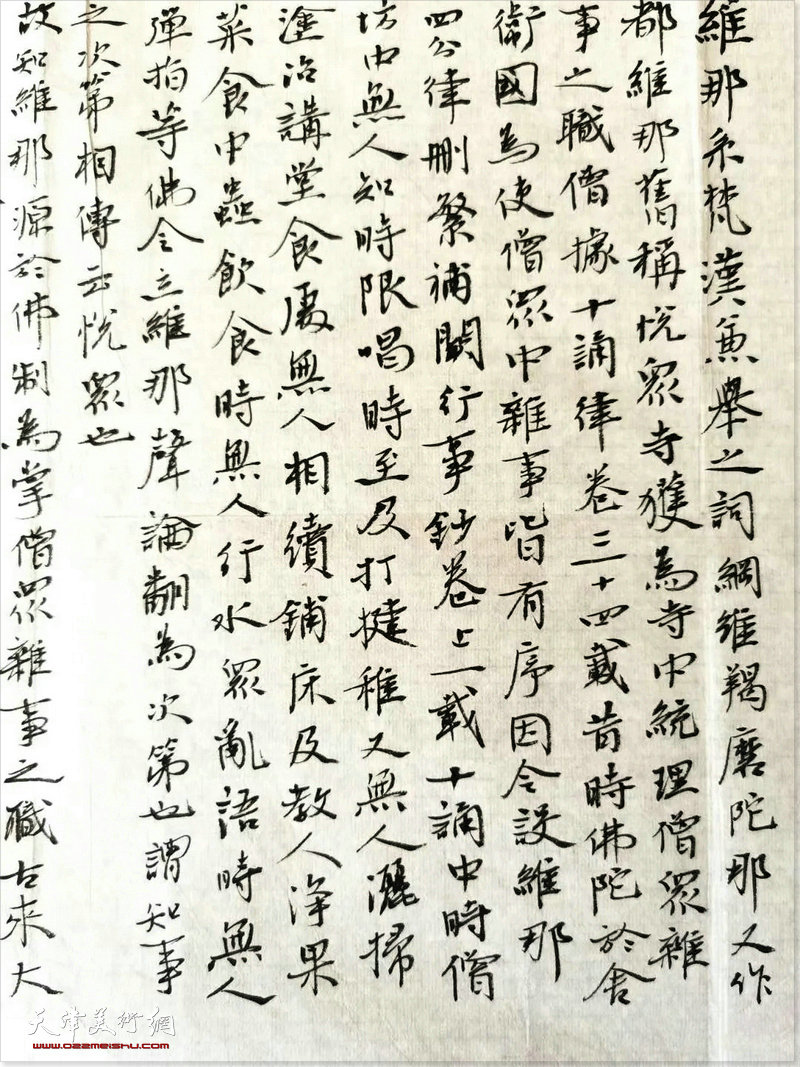 維那系梵漢兼舉之詞綱維羯磨陀那又作
都維那舊稱悅眾寺獲為寺中統理僧眾雜
事之職僧據十誦律卷三十四載昔時佛陀於舍
衛國為使僧眾中雜事皆有序因令設維那
四分律刪繁補闕行事鈔卷上一載十誦中時僧
坊中無人知時限唱時至及打揵稚又無人灑掃
塗治講堂食處無人相續鋪床及教人淨果
菜食中蟲飲食時無人行水眾亂語時無人
彈指等佛令立維那聲論翻為次第也謂知事
之次第相傳云悅眾也
故知維那源於佛制為掌僧眾雜事之職古來大
天津美術網
www.022meishu.com